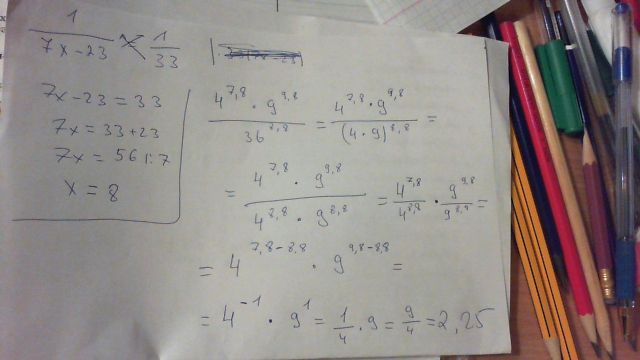 1/(7x-23) = 1/33
7x-23 = 33
7x = 33+23
7x = 56 | :7
x = 8
(4^7,8 · 9^9,8)/36^8,8 = (4^7,8 · 9^9,8)/(4·9)^8,8 =
= (4^7,8 · 9^9,8)/(4^8,8 · 9^8,8) = 4^7,8/4^8,8 · 9^9,8/9^8,8 =
= 4^7,8-8,8 · 9^9,8-8,8 =
= 4^-1 · 9^1 = 1/4 · 9 = 9/4 = 2,25